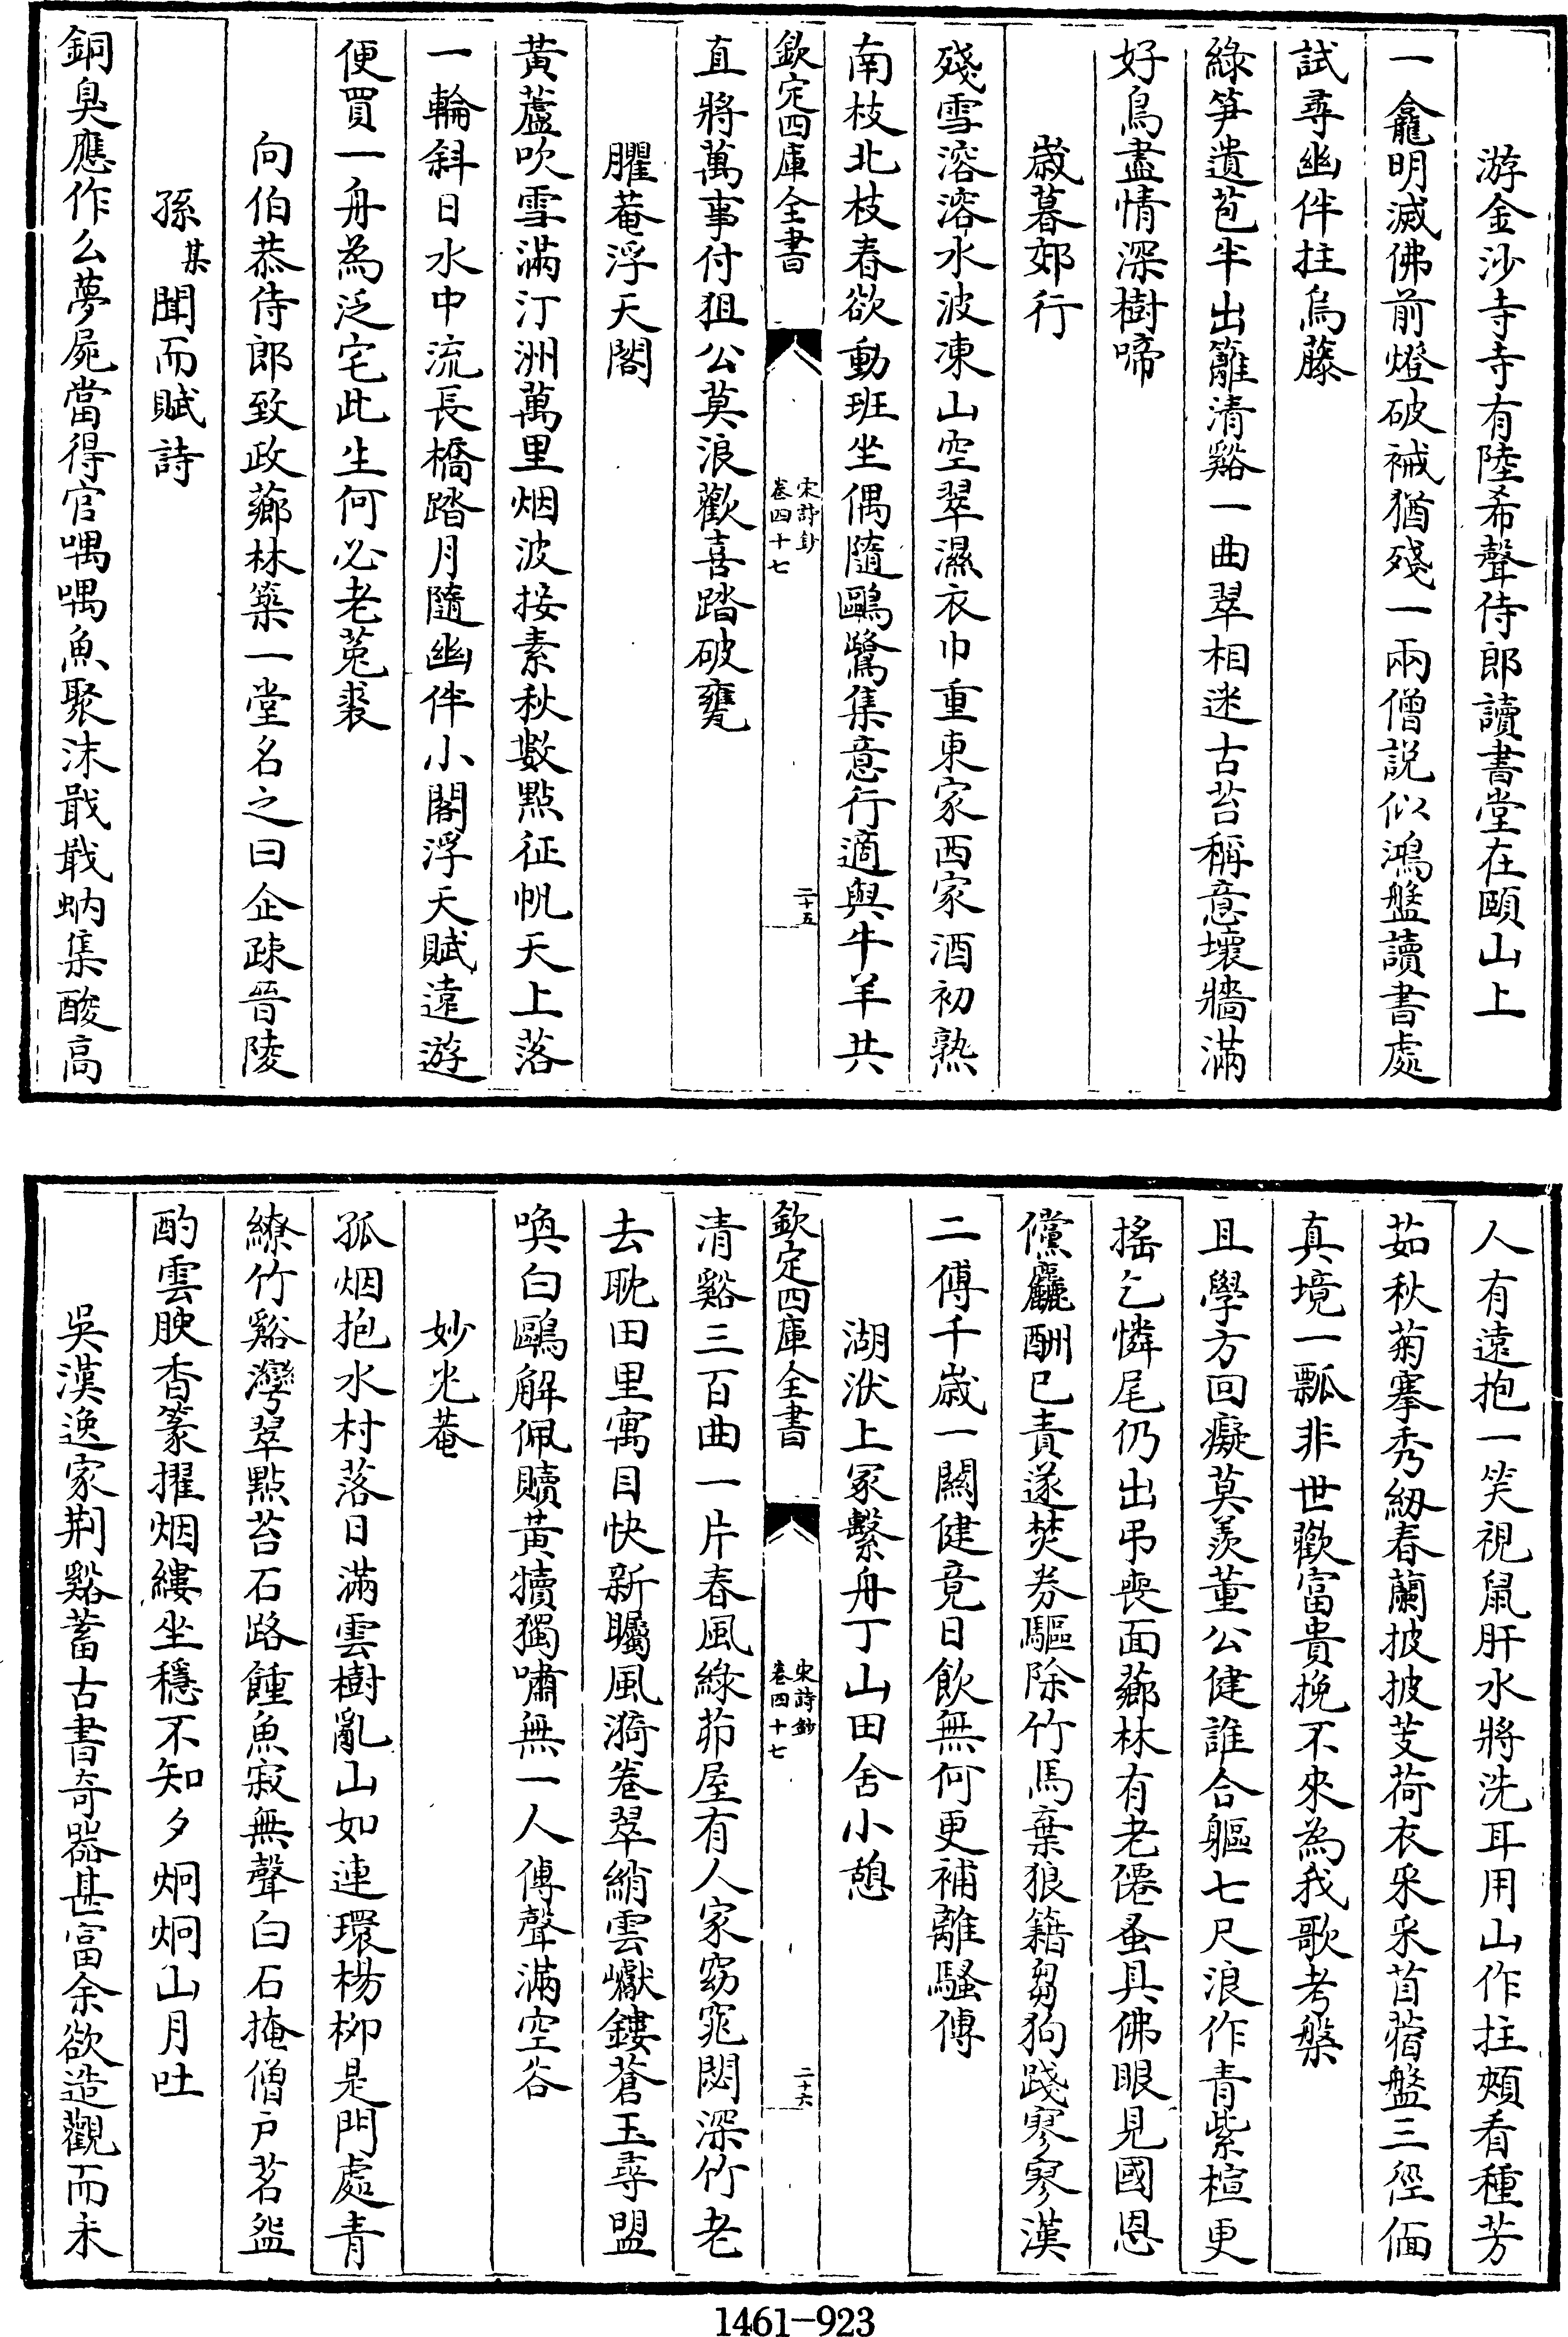 游金沙寺寺有陸希聲侍郎讀書堂在頤山上
一龕明滅佛前燈破裓猶殘一兩僧説似鴻盤讀書處
試尋幽伴拄烏藤
綠笋遺苞半出籬清谿一曲翠相迷古苔稱意壞牆滿
好鳥盡情深樹啼
歲暮郊行
殘雪溶溶水波凍山空翠濕衣巾重東家西家酒初熟
南枝北枝春欲動班坐偶隨鷗鷺集意行適與牛羊共
欽定四庫全書
宋詩鈔
卷四十七
二十五
直將萬事付狙公莫浪歡喜踏破甕
臞菴浮天閣
黃蘆吹雪滿汀洲萬里烟波接素秋數點征帆天上落
一輪斜日水中流長橋踏月隨幽伴小閣浮天賦遠遊
便買一舟為泛宅此生何必老菟裘
向伯恭侍郎致政薌林築一堂名之曰企疎晉陵
孫某聞而賦詩
銅臭應作么夢屍當得官喁喁魚聚沫戢戢蚋集酸高
人有遠抱一笑視鼠肝水將洗耳用山作拄頰看種芳
茹秋菊搴秀紉春蘭披披芰荷衣采采苜蓿盤三徑偭
真境一瓢非世歡富貴挽不來為我歌考槃
且學方回癡莫羨董公健誰合軀七尺浪作青紫楦更
搖乞憐尾仍出弔喪面薌林有老僊蚤具佛眼見國恩
儻麤酬已責遂焚券驅除竹馬棄狼籍芻狗踐寥寥漢
二傅千歲一關健竟日飲無何更補離騷傳
湖㳇上冢繫舟丁山田舍小憩
欽定四庫全書
宋詩鈔
卷四十七
二十六
清谿三百曲一片春風綠茆屋有人家窈窕閟深竹老
去耽田里寓目快新矚風漪卷翠綃雲巘鏤蒼玉尋盟
喚白鷗解佩贖黃犢獨嘯無一人傳聲滿空谷
妙光菴
孤烟抱水村落日滿雲樹亂山如連環楊柳是門處青
繚竹谿灣翠點苔石路餔魚寂無聲白石掩僧戶茗盌
酌雲腴香篆擢烟縷坐穩不知夕炯炯山月吐
吳漢逸家荆谿蓄古書奇器甚富余欲造觀而未
1461-923